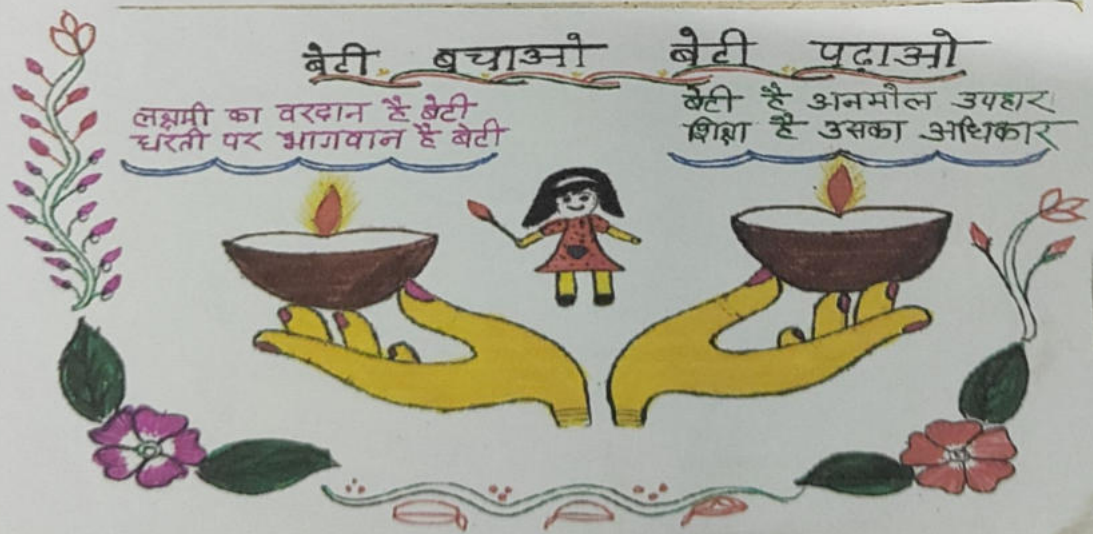 बेटी बचाओ बेटी पढ़ाओ
लक्ष्मी का वरदान है बेटी
धरती पर भागवान है बेटी
बेटी है अनमोल उपहार
शिक्षा है उसका अधिकार